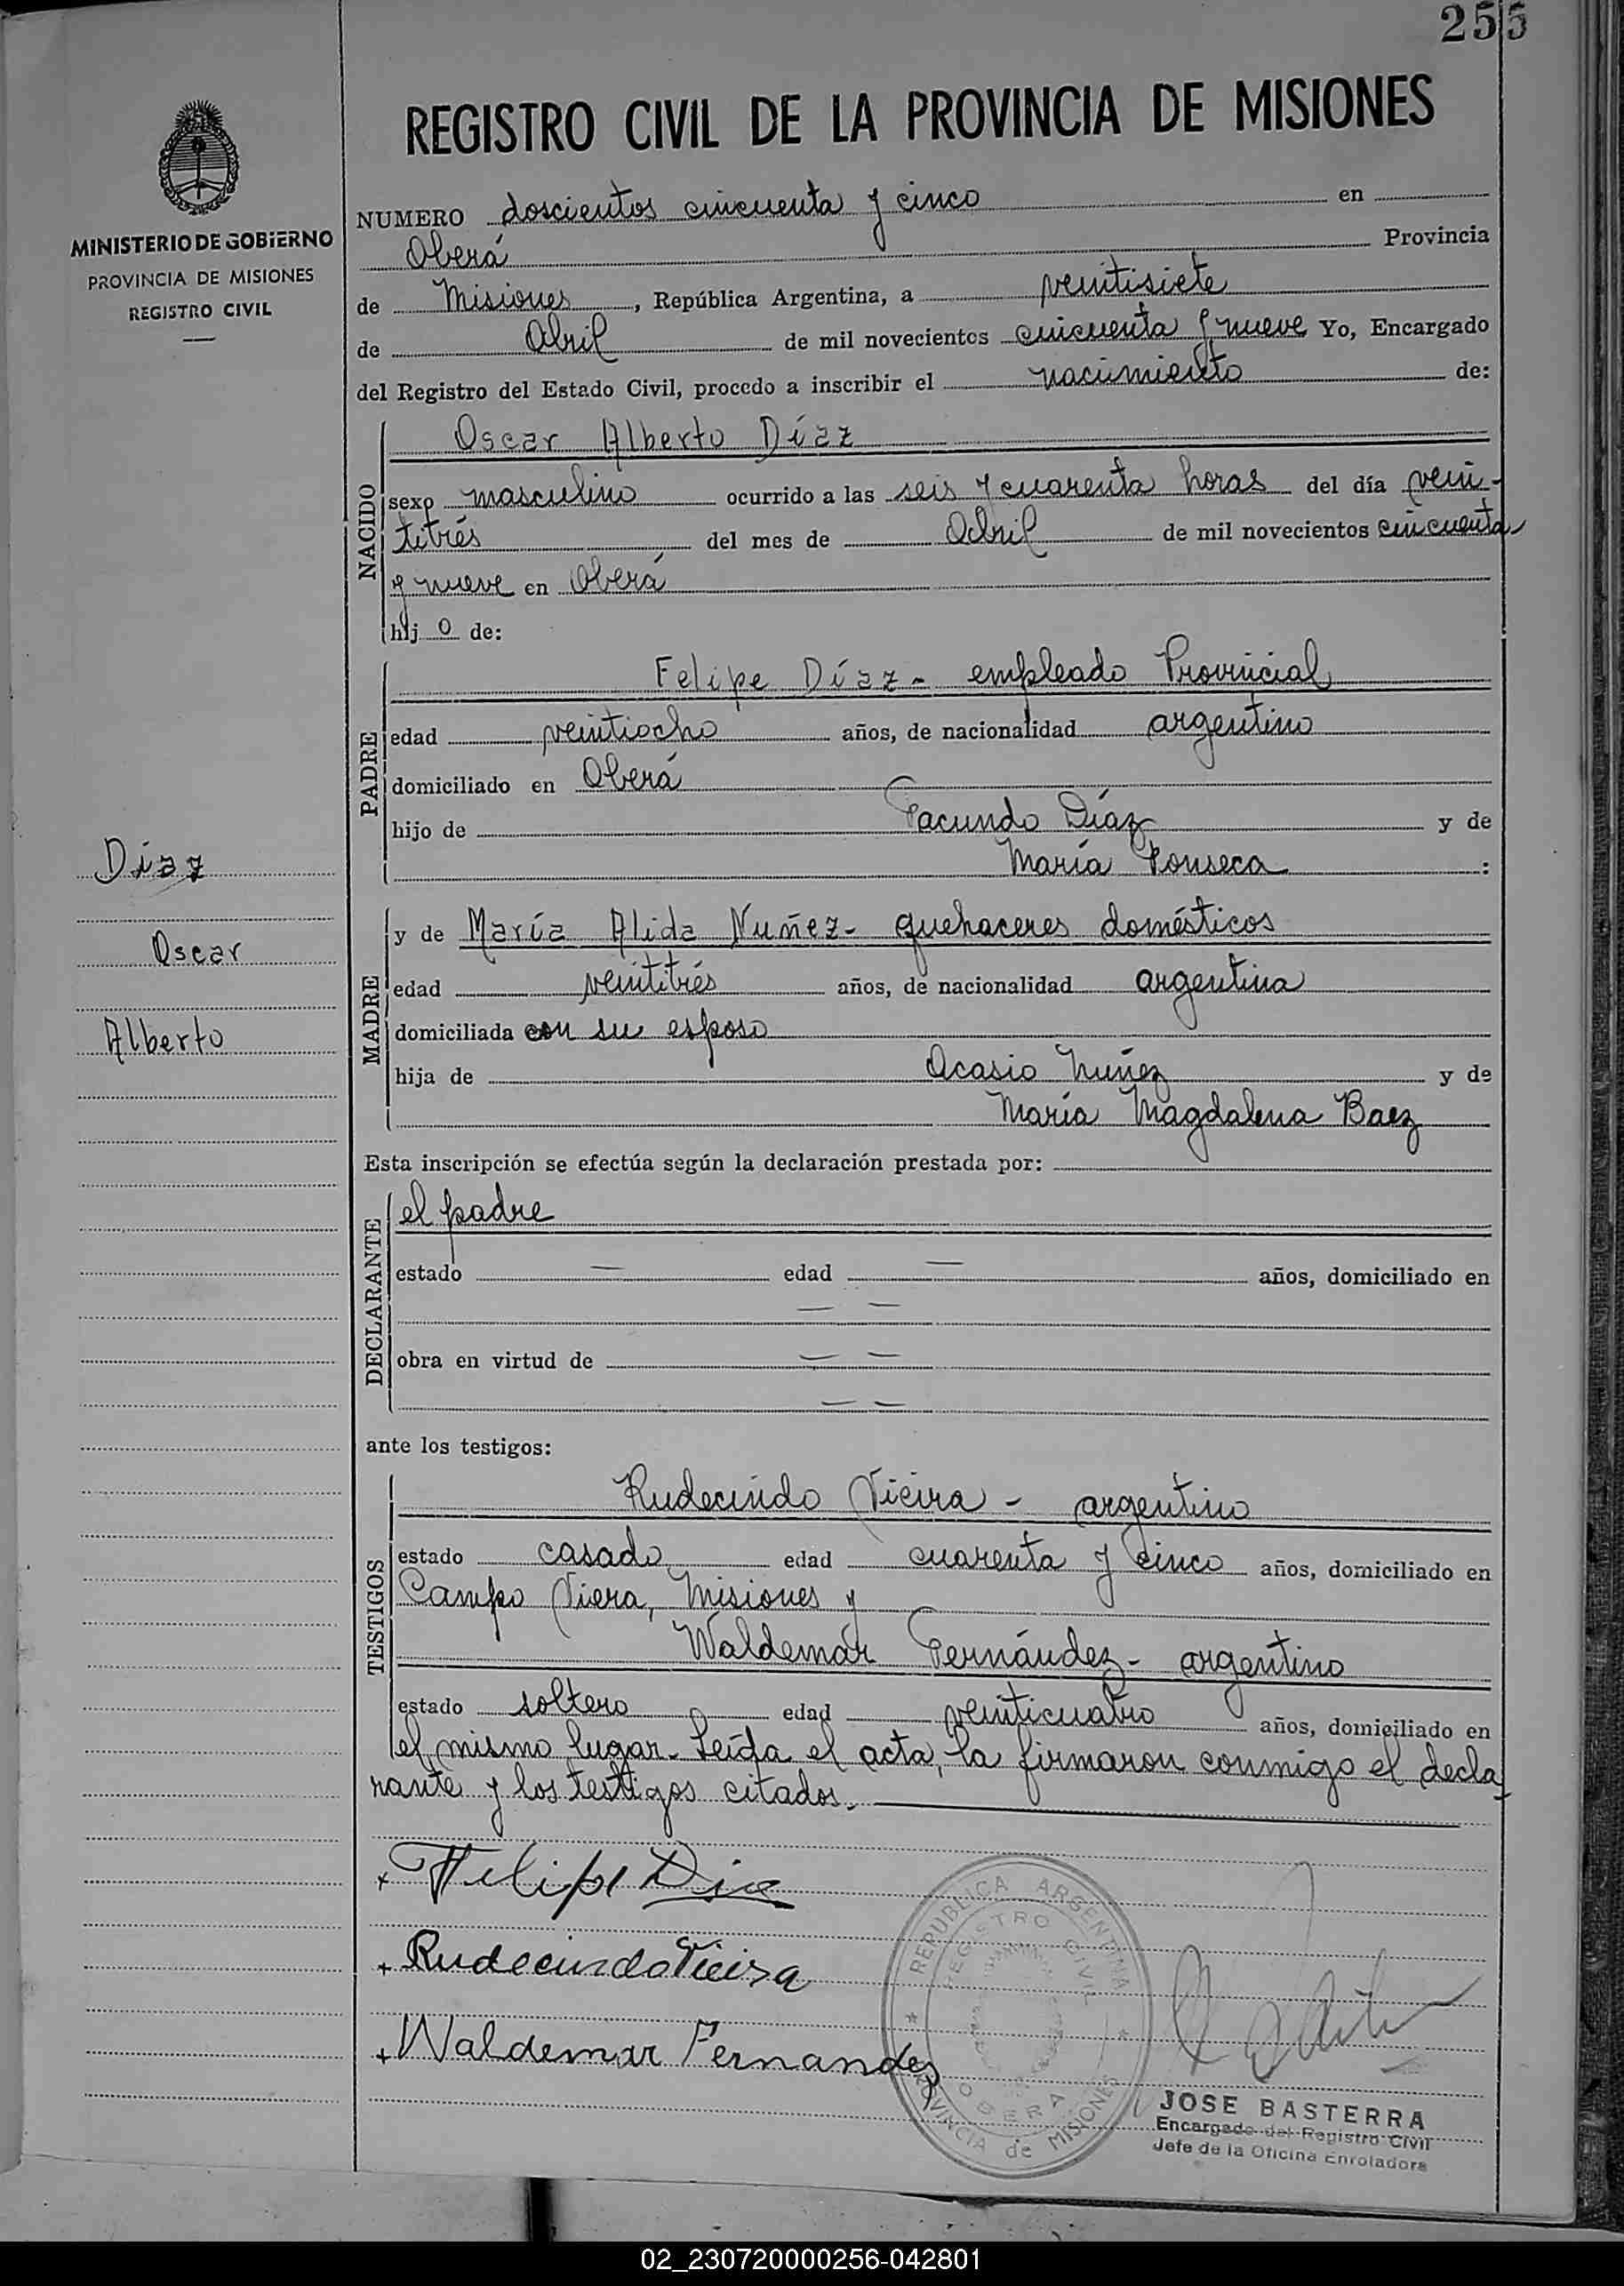 255
REGISTRO CIVIL DE LA PROVINCIA DE MISIONES
MINISTERIO DE GOBIERNO
PROVINCIA DE MISIONES
REGISTRO CIVIL
NUMERO doscientos cincuenta y cinco en
Oberá Provincia
de Misiones, República Argentina, a veintisiete
de Abril de mil novecientos cincuenta y nueve Yo, Encargado
del Registro del Estado Civil, procedo a inscribir el nacimiento de:
NACIDO
Oscar Alberto Díaz
sexo masculino ocurrido a las seis y cuarenta horas del día vein-
titrés del mes de Abril de mil novecientos cincuenta
y nueve en Oberá
hij o de:
PADRE
Felipe Díaz - empleado Provincial
edad veintiocho años, de nacionalidad argentino
domiciliado en Oberá
hijo de Facundo Díaz y de
María Fonseca :
Díaz
Oscar
Alberto
MADRE
y de María Alida Nuñez - quehaceres domésticos
edad veintitrés años, de nacionalidad argentina
domiciliada con su esposo
hija de Acasio Nuñez y de
María Magdalena Baez
Esta inscripción se efectúa según la declaración prestada por:
DECLARANTE
el padre
estado — edad — años, domiciliado en
— —
obra en virtud de — —
— —
ante los testigos:
TESTIGOS
Rudecindo Vieira - argentino
estado casado edad cuarenta y cinco años, domiciliado en
Campo Viera, Misiones y
Waldemar Fernández - argentino
estado soltero edad veinticuatro años, domiciliado en
el mismo lugar. Leída el acta, la firmaron conmigo el decla-
rante y los testigos citados.
+ Felipe Diaz
+ Rudecindo Vieira
+ Waldemar Fernandez
REPUBLICA ARGENTINA
REGISTRO CIVIL
OBERA
PROVINCIA de MISIONES
JOSE BASTERRA
Encargado del Registro Civil
Jefe de la Oficina Enroladora
02_230720000256-042801